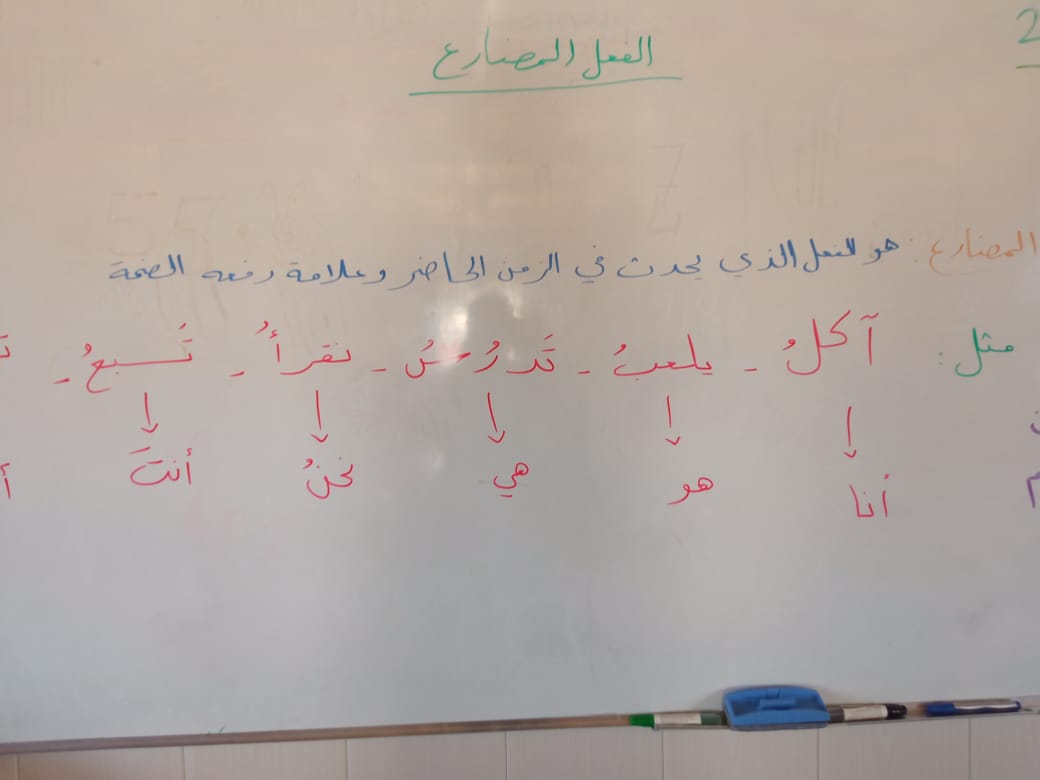 الفعل المضارع
المضارع : هو الفعل الذي يحدث في الزمن الحاضر وعلامة رفعه الضمة
مثل : آكلُ - يلعبُ - تَدرُسُ - نقرأُ - تَسبعُ -
أنا هو هي نحنُ أنتَ